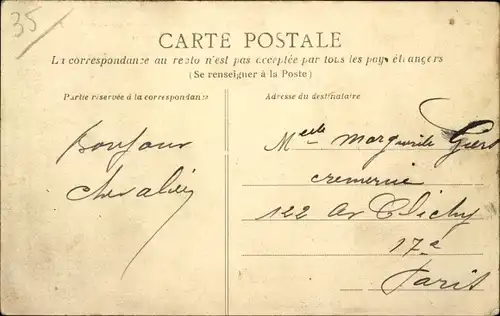 35
CARTE POSTALE
La correspondance au recto n'est pas acceptée par tous les pays étrangers
(Se renseigner à la Poste)
Partie réservée à la correspondance
Adresse du destinataire
Bonjour
Chevalier
Melle Marguerite
cremerie
122 av Clichy
17e
Paris